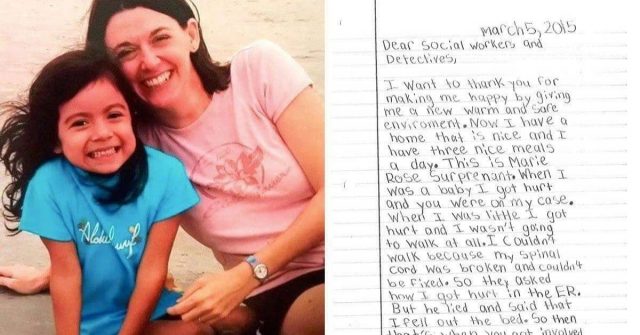 March 5, 2015
Dear Social workers and
Detectives,
I want to thank you for
making me happy by giving
me a new warm and safe
enviroment. Now I have a
home that is nice and I
have three nice meals
a day. This is Marie
Rose Surprenant. When I
was a baby I got hurt
and you were on my case.
When I was little I got
hurt and I wasn't going
to walk at all. I Couldn't
walk because my spinal
cord was broken and couldn't
be fixed. So they asked
how I got hurt in the ER.
But he lied and Said that
I fell out the bed. So then
that's when you got involved